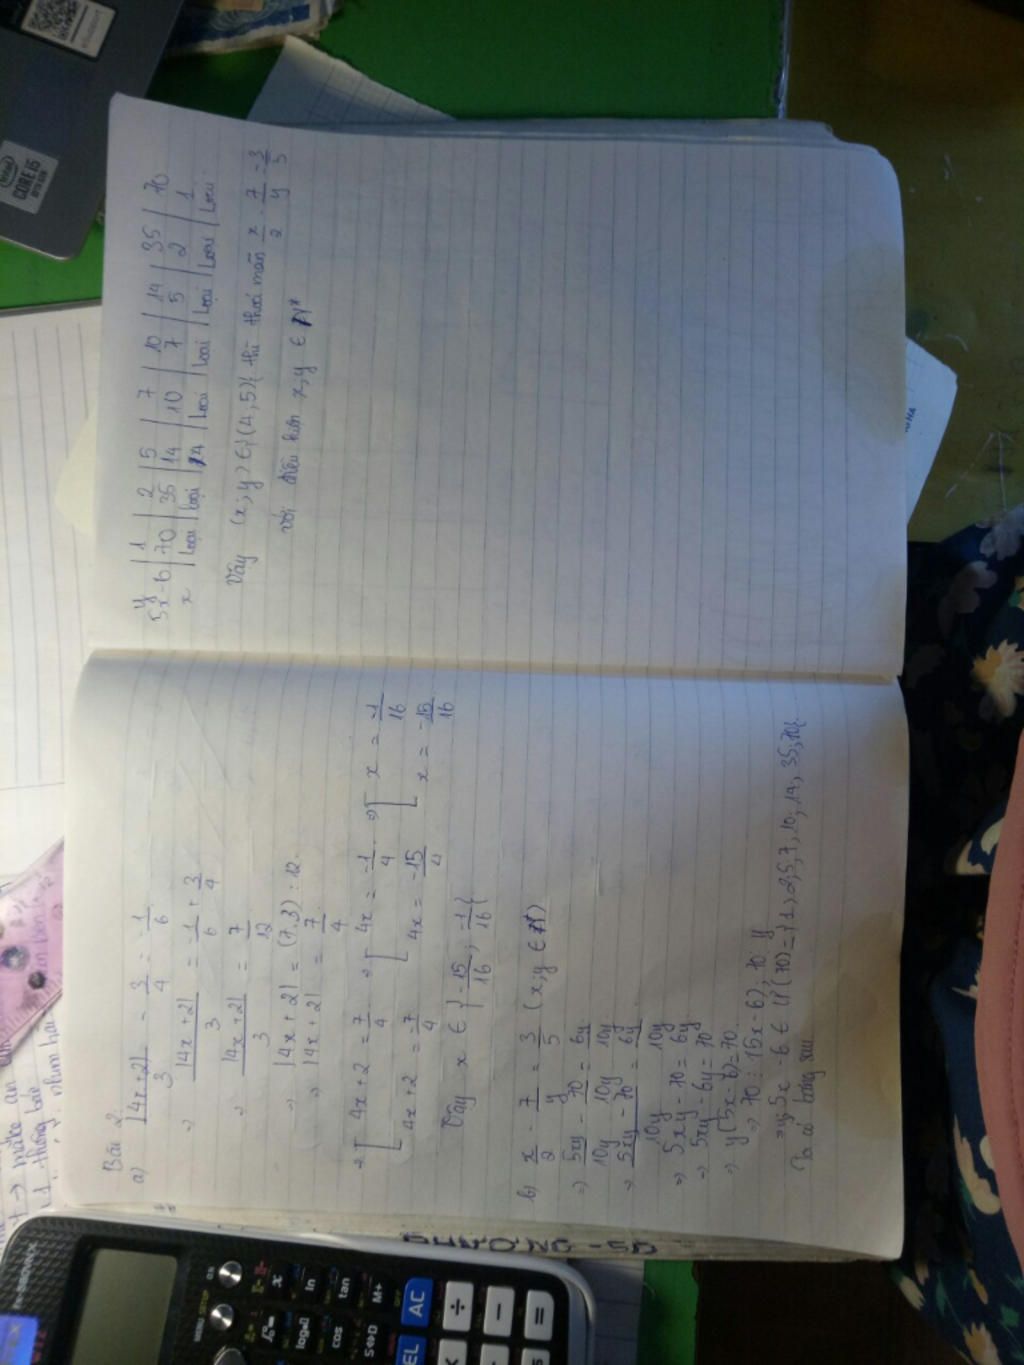 Bài 2
a) |4x+2|/3 - 3/4 = -1/6
⇒ |4x+2|/3 = -1/6 + 3/4
⇒ |4x+2|/3 = 7/12
⇒ |4x+2| = (7.3):12
⇒ |4x+2| = 7/4
⇒ [ 4x+2 = 7/4 ⇒ [ 4x = -1/4 ⇒ [ x = -1/16
4x+2 = -7/4 4x = -15/4 x = -15/16
Vậy x ∈ {-15/16; -1/16}
b) x/2 - 7/y = 3/5 (x;y ∈ N*)
⇒ 5xy/10y - 70/10y = 6y/10y
⇒ 5xy - 70/10y = 6y/10y
⇒ 5xy - 70 = 6y
⇒ 5xy - 6y = 70
⇒ y(5x-6) = 70
⇒ 70 : (5x-6); 70 : y
⇒ y; 5x-6 ∈ Ư(70) = {1;2;5;7;10;14;35;70}
Ta có bảng sau
y | 1 | 2 | 5 | 7 | 10 | 14 | 35 | 70
5x-6 | 70 | 35 | 14 | 10 | 7 | 5 | 2 | 1
x | Loại | Loại | 4 | Loại | Loại | Loại | Loại | Loại
Vậy (x;y) ∈ {(4;5)} thì thoả mãn x/2 . 7/y = 3/5
với điều kiện x;y ∈ N*
CORE i5
make an
thông báo
AC
ln
tan
M+
cos
S⇔D
÷
=